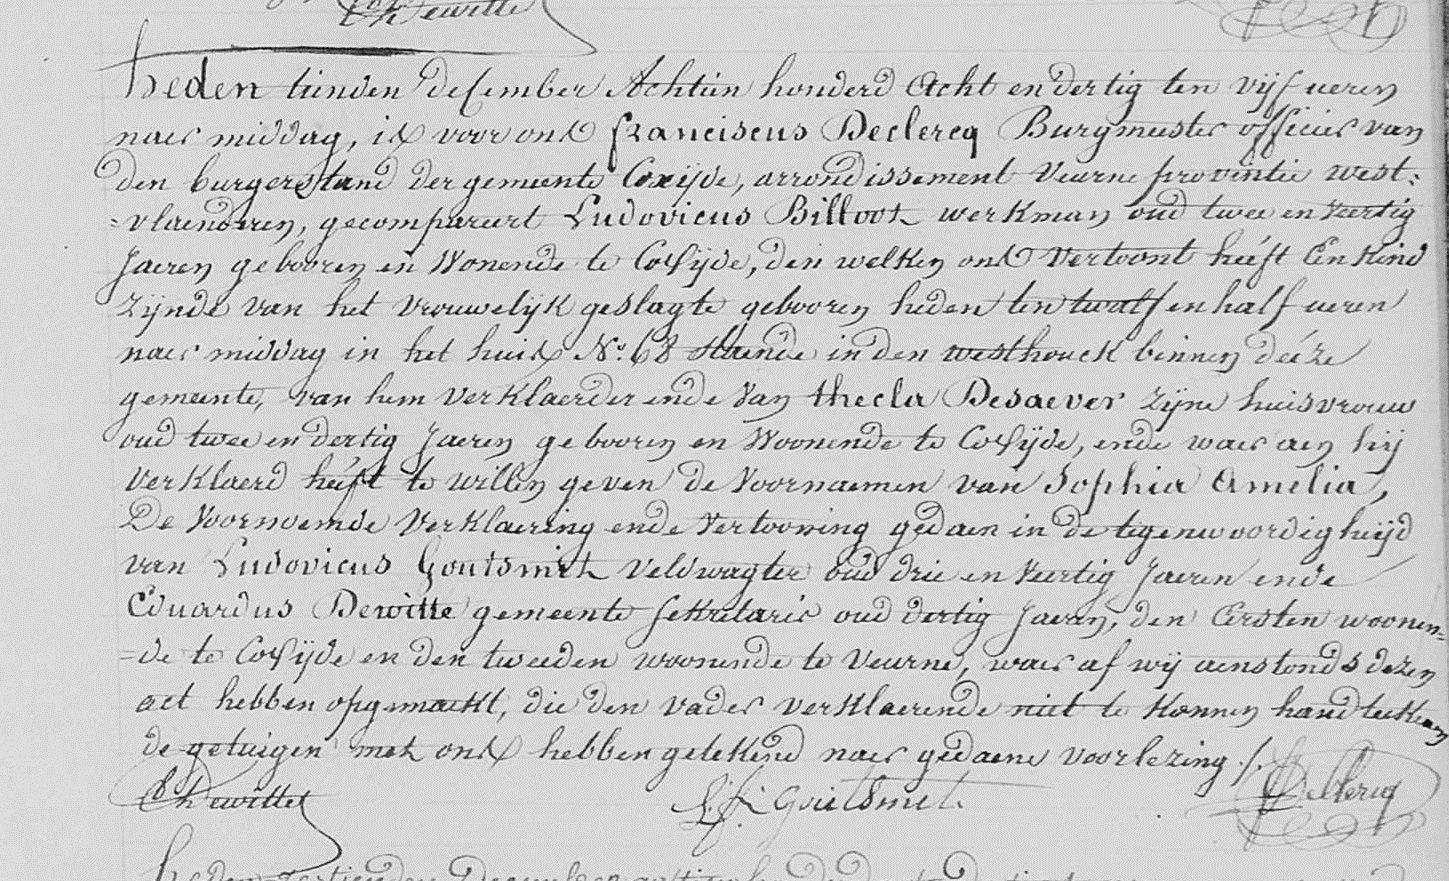 Dewitte
heden tienden december Achtien honderd Acht en dertig ten vijf ueren
naer middag, is voor ons franciscus Declercq Burgmeester officier van
den burgerstand der gemeente Coxijde, arrondissement Veurne provintie west:
=vlaenderen, gecompareert Ludovicus Billoot werkman oud twee en veertig
Jaeren gebooren en Wonende te Coxijde, den welken ons Vertoont heéft Een Kind
zijnde van het vrouwelijk geslagte gebooren heden ten twalf en half ueren
naer middag in het huis No. 68 staende in den westhouck binnen déeze
gemeente, van hem verklaerder ende van thecla Desaever zijne huisvrouw
oud twee en dertig Jaeren gebooren en Woonende te Coxijde, ende waer aen hij
verklaerd heéft te willen geven de voornaemen van Sophia Amelia,
De voornoemde verklaering ende vertooning gedaen in de tegenwoordigheijd
van Ludovicus Goutsmit veldwagter oud drie en veertig Jaeren ende
Eduardus Dewitte gemeente sekretaris oud dertig Jaeren, den Eersten woonen=
=de te Coxijde en den tweeden woonende te Veurne, waer af wij aenstonds dezen
act hebben opgemaekt, die den vader verklaerende niet te konnen handteekenen
de getuigen met ons hebben getekend naer gedaene voorlezing ./.
Dewitte Goutsmit. Declercq
heden